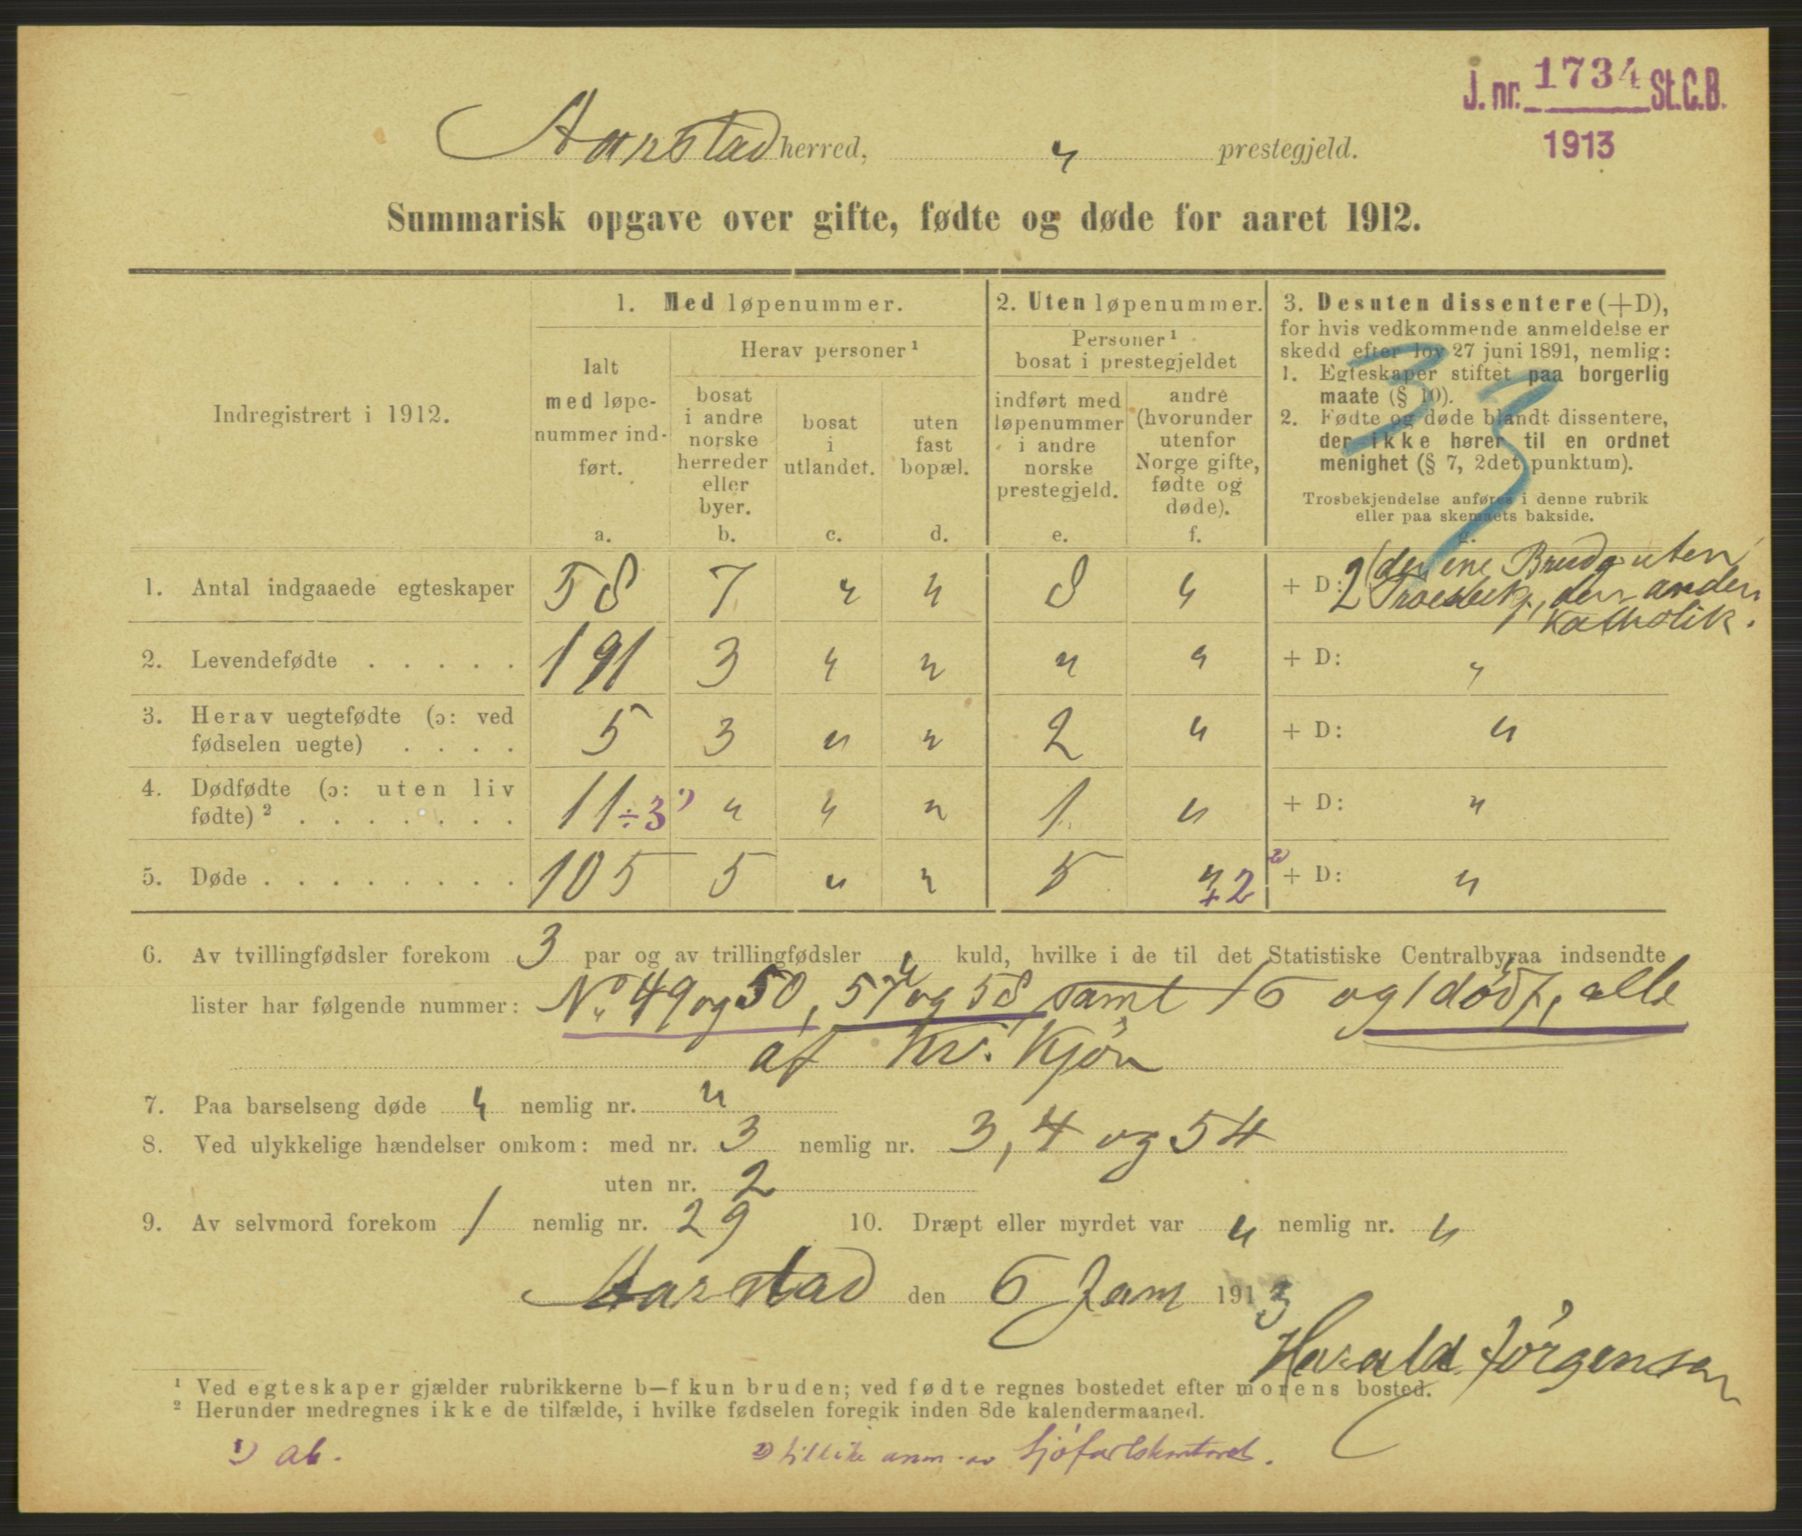 J. nr. 1734 St.C.B.
1913
Aarstad herred, " prestegjeld.
Summarisk opgave over gifte, fødte og døde for aaret 1912.
Indregistrert i 1912.
1. Med løpenummer.
Ialt med løpenummer indført.
a.
Herav personer ¹
bosat i andre norske herreder eller byer.
b.
bosat i utlandet.
c.
uten fast bopæl.
d.
2. Uten løpenummer.
Personer ¹ bosat i prestegjeldet
indført med løpenummer i andre norske prestegjeld.
e.
andre (hvorunder utenfor Norge gifte, fødte og døde).
f.
3. Desuten dissentere (+D),
for hvis vedkommende anmeldelse er
skedd efter lov 27 juni 1891, nemlig:
1. Egteskaper stiftet paa borgerlig
maate (§ 10).
2. Fødte og døde blandt dissentere,
der ikke hører til en ordnet
menighet (§ 7, 2det punktum).
Trosbekjendelse anføres i denne rubrik
eller paa skemaets bakside.
g.
33
1. Antal indgaaede egteskaper 58 7 " " 8 " + D: 2 (den ene Brud uten
Troesbekj., den anden
Katholik.
2. Levendefødte . . . . . 191 3 " " " " + D: "
3. Herav uegtefødte (ɔ: ved
fødselen uegte) . . . . 5 3 " " 2 " + D: "
4. Dødfødte (ɔ: uten liv
fødte) ² . . . . . . . 11 ÷3 ¹) " " " 1 " + D: "
5. Døde . . . . . . . . 105 5 " " 5 " +2 ²) + D: "
6. Av tvillingfødsler forekom 3 par og av trillingfødsler " kuld, hvilke i de til det Statistiske Centralbyraa indsendte
lister har følgende nummer: No 49 og 50, 57 og 58 samt 16 og 1 dødf, alle
af Kv. Kjøn
7. Paa barselseng døde " nemlig nr. "
8. Ved ulykkelige hændelser omkom: med nr. 3 nemlig nr. 3, 4 og 54
uten nr. 2
9. Av selvmord forekom 1 nemlig nr. 29 10. Dræpt eller myrdet var " nemlig nr. "
Aarstad den 6 Jan 1913
Harald Jörgensen
¹ Ved egteskaper gjælder rubrikkerne b—f kun bruden; ved fødte regnes bostedet efter morens bosted.
² Herunder medregnes ikke de tilfælde, i hvilke fødselen foregik inden 8de kalendermaaned.
¹) ab.
²) tillike anm. av Sjöfartskontoret.